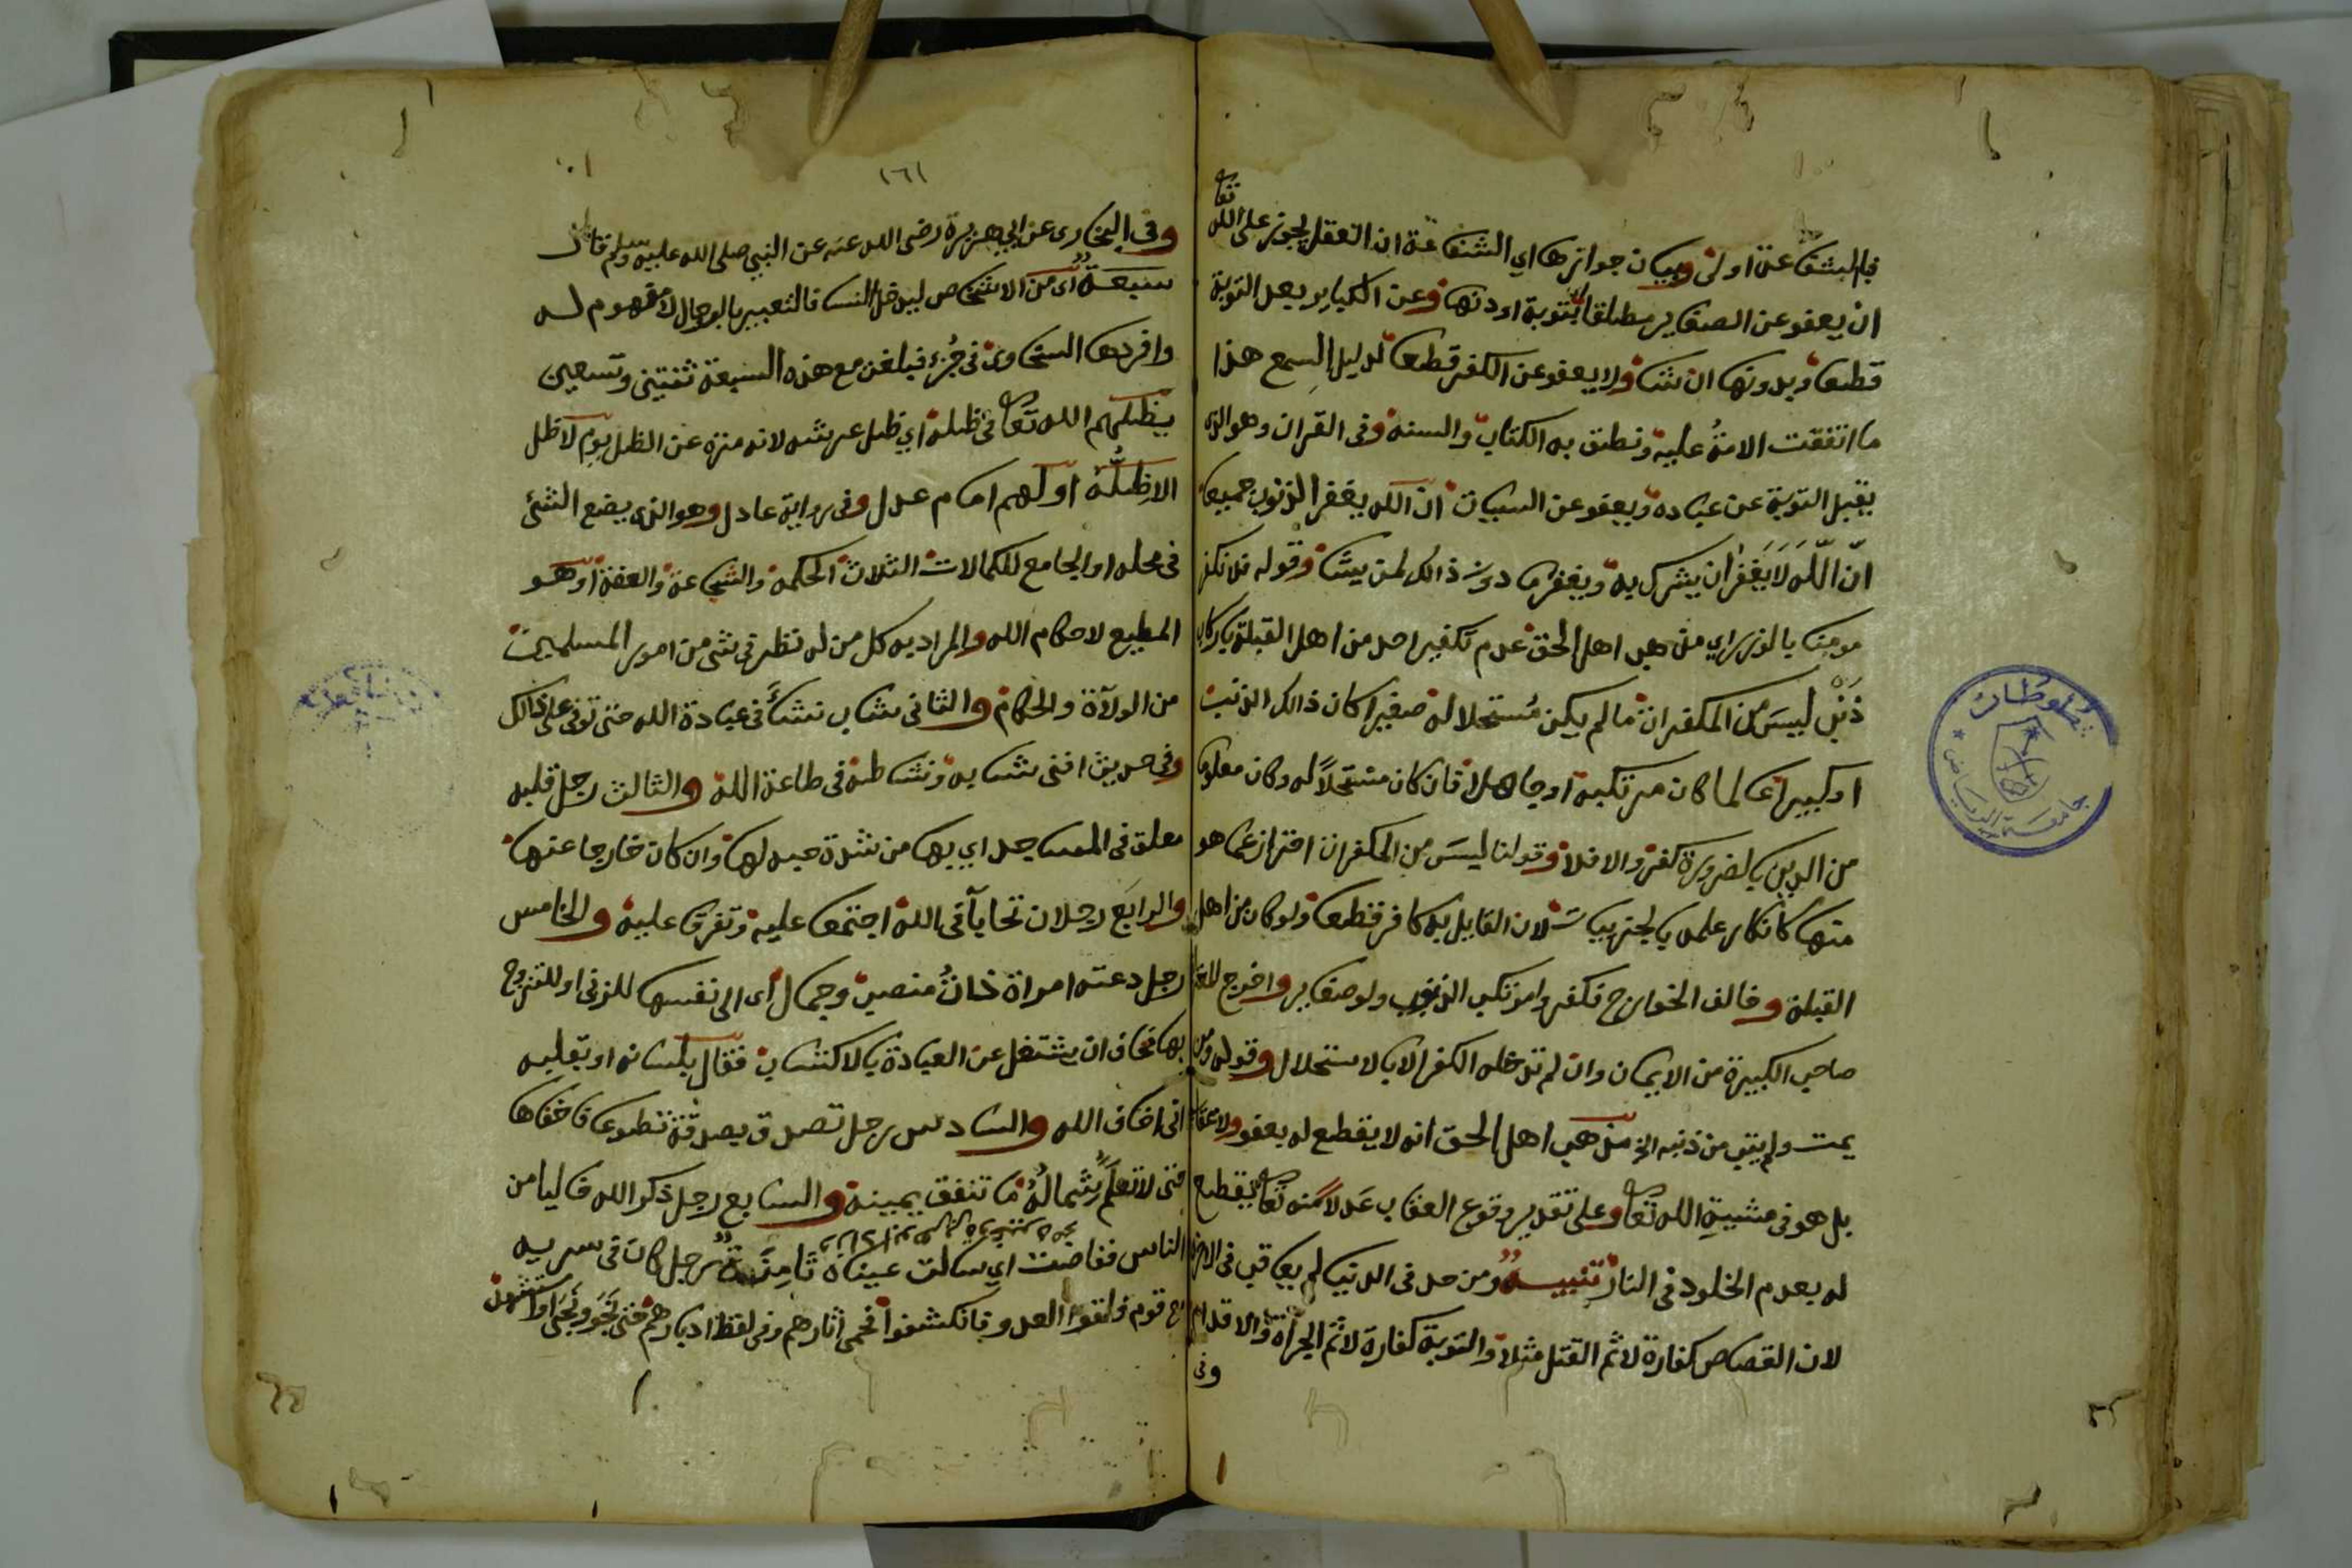 فبالشفاعة اولى وبيان جوازها اي الشفاعة ان العقل يجوز على الله تعا
ان يعفو عن الصغاير مطلقا بتوبة او دونها وعن الكباير بعد التوبة
قطعا وبدونها ان شا ولا يعفو عن الكفر قطعا لدليل السمع هذا
ما اتفقت الامة عليه ونطق به الكتاب والسنة وفى القران وهو الذى
يقبل التوبة عن عباده ويعفو عن السيات ان الله يغفر الذنوب جميعا
ان الله لا يغفر ان يشرك به ويغفر ما دون ذالك لمن يشا وقوله فلا نكفر
مومنا بالوزر اي مذهب اهل الحق عدم تكفير احد من اهل القبلة بارتكاب
ذنب ليس من المكفرات ما لم يكن مستحلا له صغيرا كان ذالك الذنب
او كبيرا عالما كان مرتكبه او جاهلا فان كان مستحلا له وكان معلوما
من الدين بالضرورة كفر والا فلا وقولنا ليس من المكفرات احتراز عما هو
منها كانكار علمه بالجزييات لان القايل به كافر قطعا ولو كان من اهل
القبلة وخالف الخوارج فكفروا مرتكب الذنوب ولو صغاير واخرج المعتزلة
صاحب الكبيرة من الايمان وان لم تدخله الكفر الا بالاستحلال وقوله ومن
يمت ولم يتب من ذنبه الخ مذهب اهل الحق انه لا يقطع له بعفو ولا عقاب
بل هو فى مشيية الله تعا وعلى تقدير وقوع العقاب عدلا منه تعا يقطع
له بعدم الخلود فى النار تنبيه ومن حد فى الدنيا لم يعاقب فى الاخرة
لان القصاص كفارة لاثم القتل مثلا والتوبة كفارة لاثم الجرأة والاقدام
وفى
١٦١
وفى البخارى عن ابي هريرة رضى الله عنه عن النبي صلى الله عليه وسلم قال
سبعة اى من الاشخاص ليدخل النسا فالتعبير بالرجال لا مفهوم له
وافردها السخاوى فى جزء فبلغن مع هذه السبعة ثنتين وتسعين
يظلهم الله تعا فى ظله اي ظل عرشه لانه منزه عن الظل يوم لا ظل
الا ظله اولهم امام عدل وفى رواية عادل وهو الذى يضع الشئ
فى محله او الجامع للكمالات الثلاث الحكمة والشجاعة والعفة او هو
المطيع لاحكام الله والمراد به كل من له نظر فى شى من امور المسلمين
من الولاة والحكام والثانى شاب نشأ فى عبادة الله حتى توفى على ذالك
وفى حديث افنى شبابه ونشاطه فى طاعة الله والثالث رجل قلبه
معلق فى المساجد اي بها من شدة حبه لها وان كان خارجا عنها
والرابع رجلان تحابا فى الله اجتمعا عليه وتفرقا عليه والخامس
رجل دعته امراة ذات منصب وجمال اى الى نفسها للزنى او للتزوج
بها فخاف ان يشتغل عن العبادة بالاكتساب فقال بلسانه او بقلبه
انى اخاف الله والسادس رجل تصدق بصدقة تطوعا فاخفاها
حتى لا تعلم شماله ما تنفق يمينه والسابع رجل ذكر الله خاليا من
الناس ففاضت اي سالت عيناه ثامنة رجل كان فى سرية
مع قوم فلقوا العدو فانكشفوا فحمى اثارهم وفى لفظ ادبارهم حتى نجو ونجى او استشهد
جامعة الرياض
مخطوطات